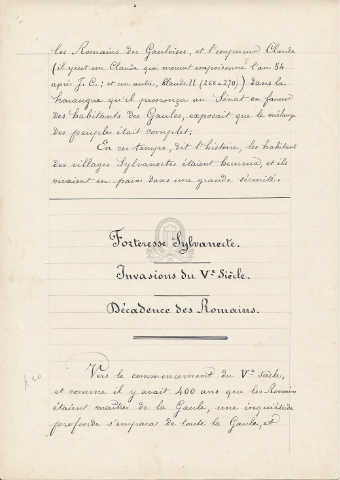 les Romains des Gaulois, et l'empereur Claude
(il y eut un Claude qui mourut empoisonné l'an 54
après J. C.; et un autre, Claude II (268-270)) dans la
harangue qu'il prononça au Sénat en faveur
des habitants des Gaules, exposait que le mélange
des peuples était complet;
En ces temps, dit l'histoire, les habitants
des villages Sylvanectes étaient heureux, et ils
vivaient en paix dans une grande sécurité.
Forteresse Sylvanecte.
Invasions du Ve Siècle.
Décadence des Romains.
Vers le commencement du Ve siècle,
et comme il y avait 400 ans que les Romains
étaient maîtres de la Gaule, une inquiétude
profonde s'empara de toute la Gaule, et